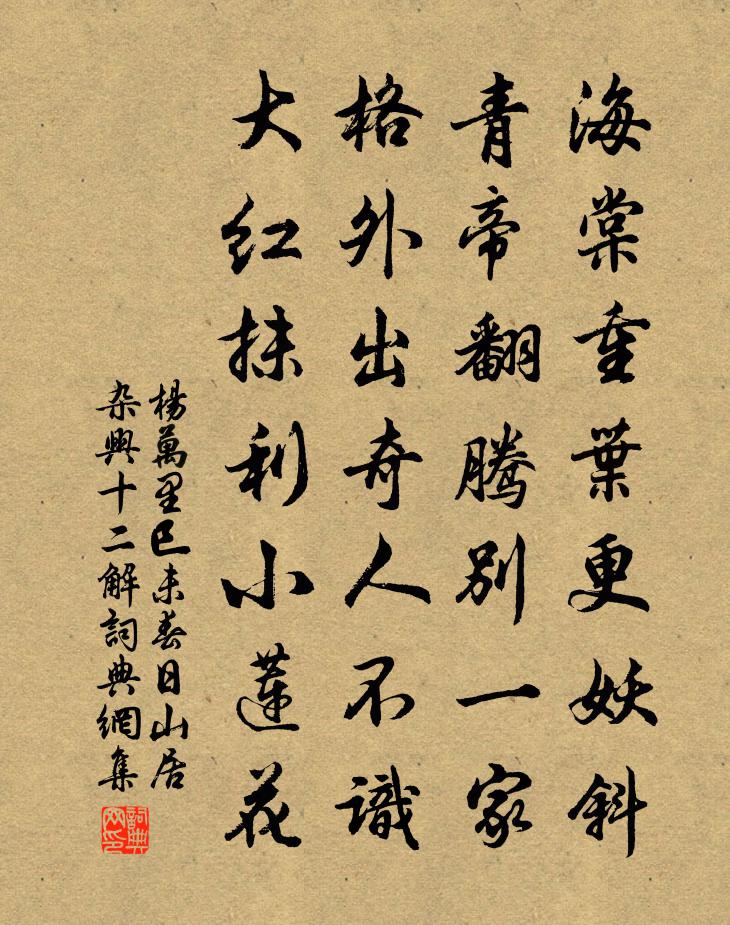 海棠重葉更妖斜
青帝翻騰別一家
格外出奇人不識
大红抹利小蓮花
楊萬里己未春日山居
杂興十二解詞典網集
詞典
网印